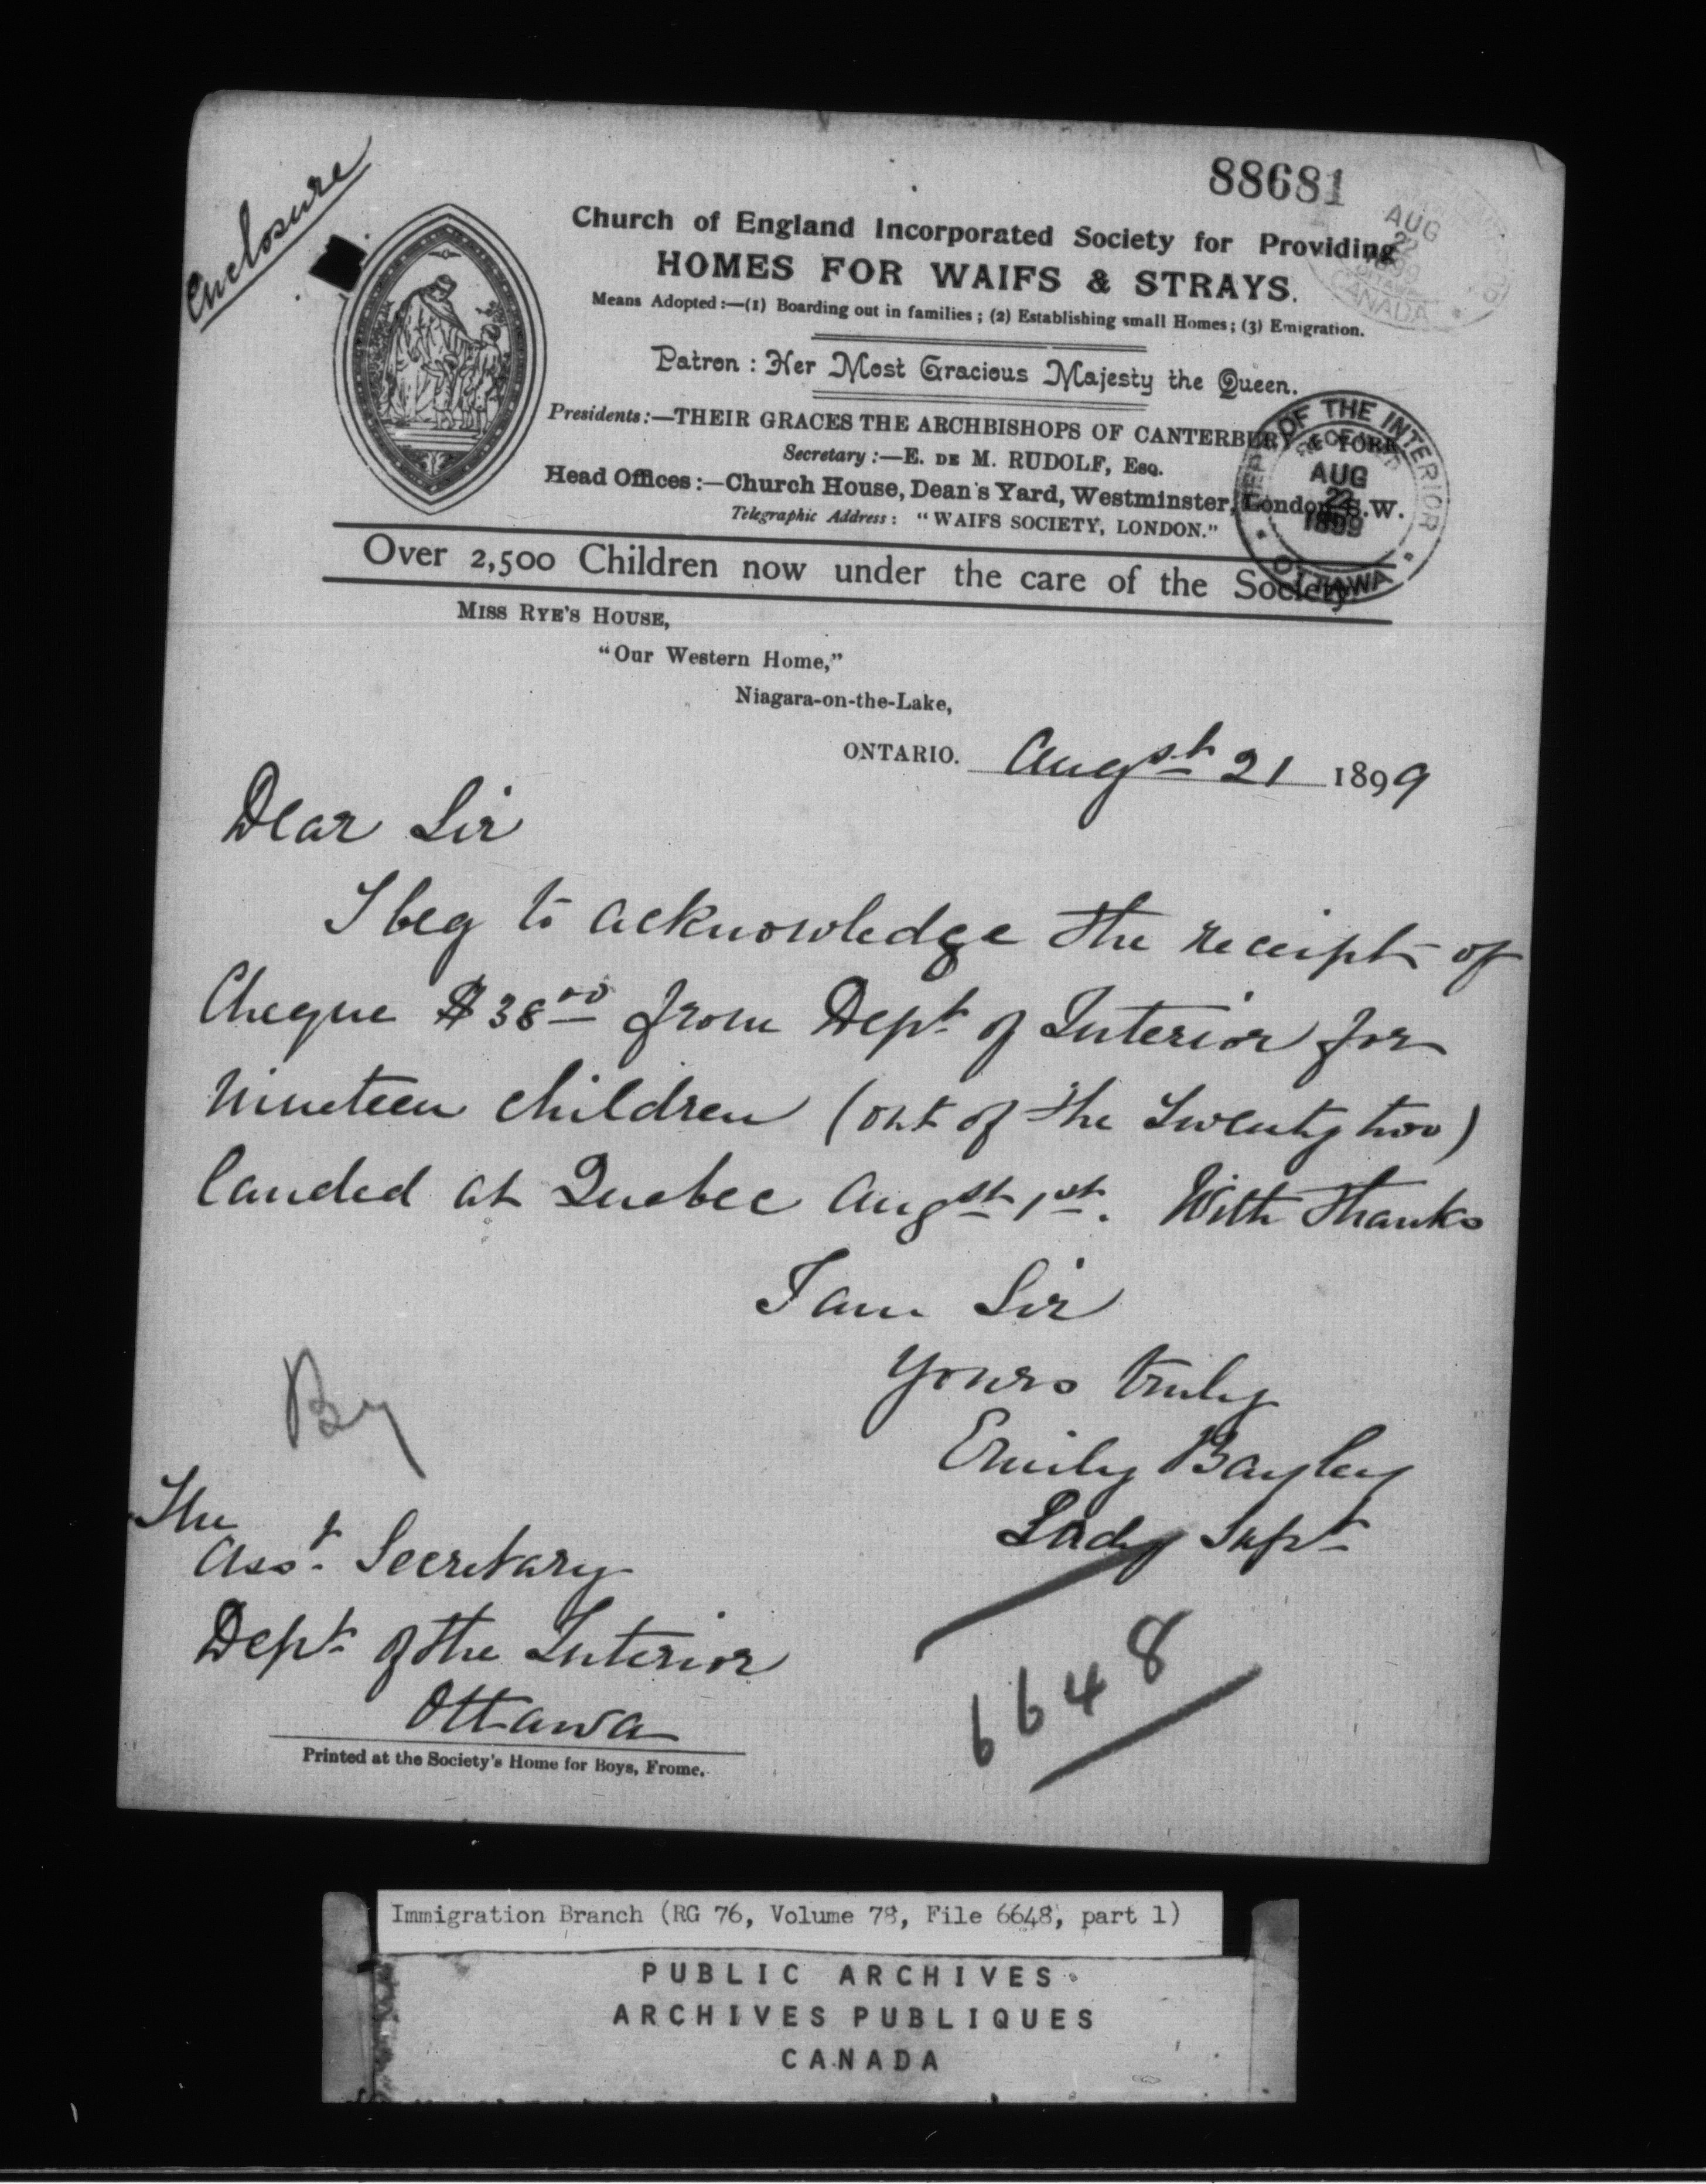 Enclosure
88681
AUG
22
1899
CANADA
Church of England Incorporated Society for Providing
HOMES FOR WAIFS & STRAYS.
Means Adopted:—(1) Boarding out in families; (2) Establishing small Homes; (3) Emigration.
Patron: Her Most Gracious Majesty the Queen.
Presidents:—THEIR GRACES THE ARCHBISHOPS OF CANTERBURY & YORK.
Secretary:—E. DE M. RUDOLF, ESQ.
Head Offices:—Church House, Dean's Yard, Westminster, London, S.W.
Telegraphic Address: "WAIFS SOCIETY, LONDON."
DEPT. OF THE INTERIOR
RECEIVED
AUG
22
1899
OTTAWA
Over 2,500 Children now under the care of the Society.
MISS RYE'S HOUSE,
"Our Western Home,"
Niagara-on-the-Lake,
ONTARIO. Augst 21 1899
Dear Sir
I beg to acknowledge the receipt of
Cheque $38.00 from Dept of Interior for
nineteen children (out of the twenty two)
landed at Quebec Augst 1st. With thanks
I am Sir
Yours truly
Emily Bayley
Lady Supt
The
Asst. Secretary
Dept of the Interior
Ottawa
6648
Printed at the Society's Home for Boys, Frome.
Immigration Branch (RG 76, Volume 78, File 6648, part 1)
PUBLIC ARCHIVES
ARCHIVES PUBLIQUES
CANADA